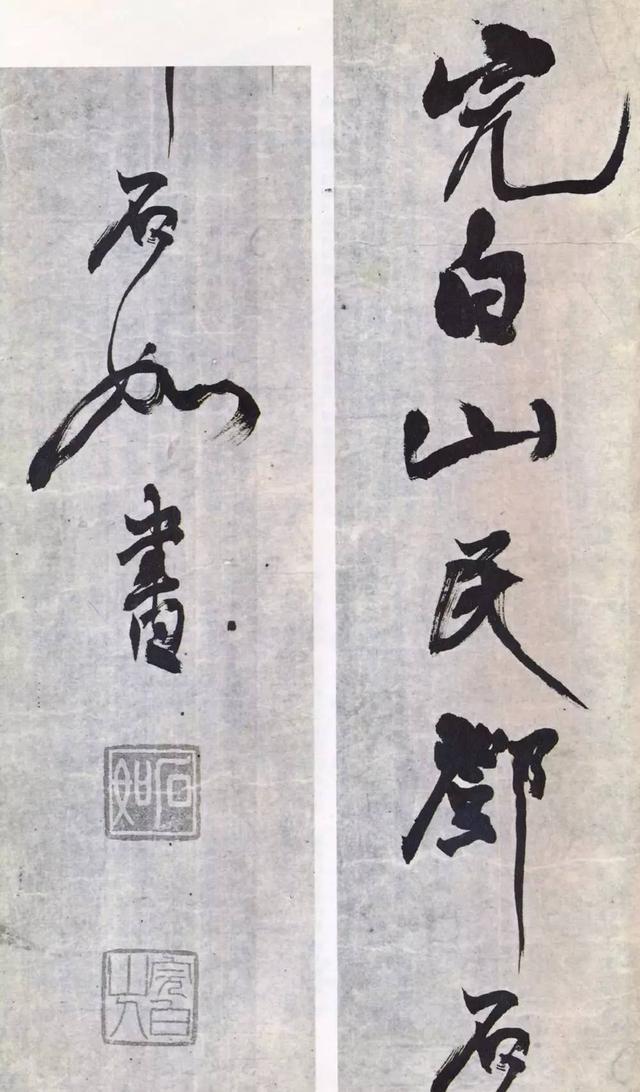 完白山民鄧石
石如書
石如
完白山人